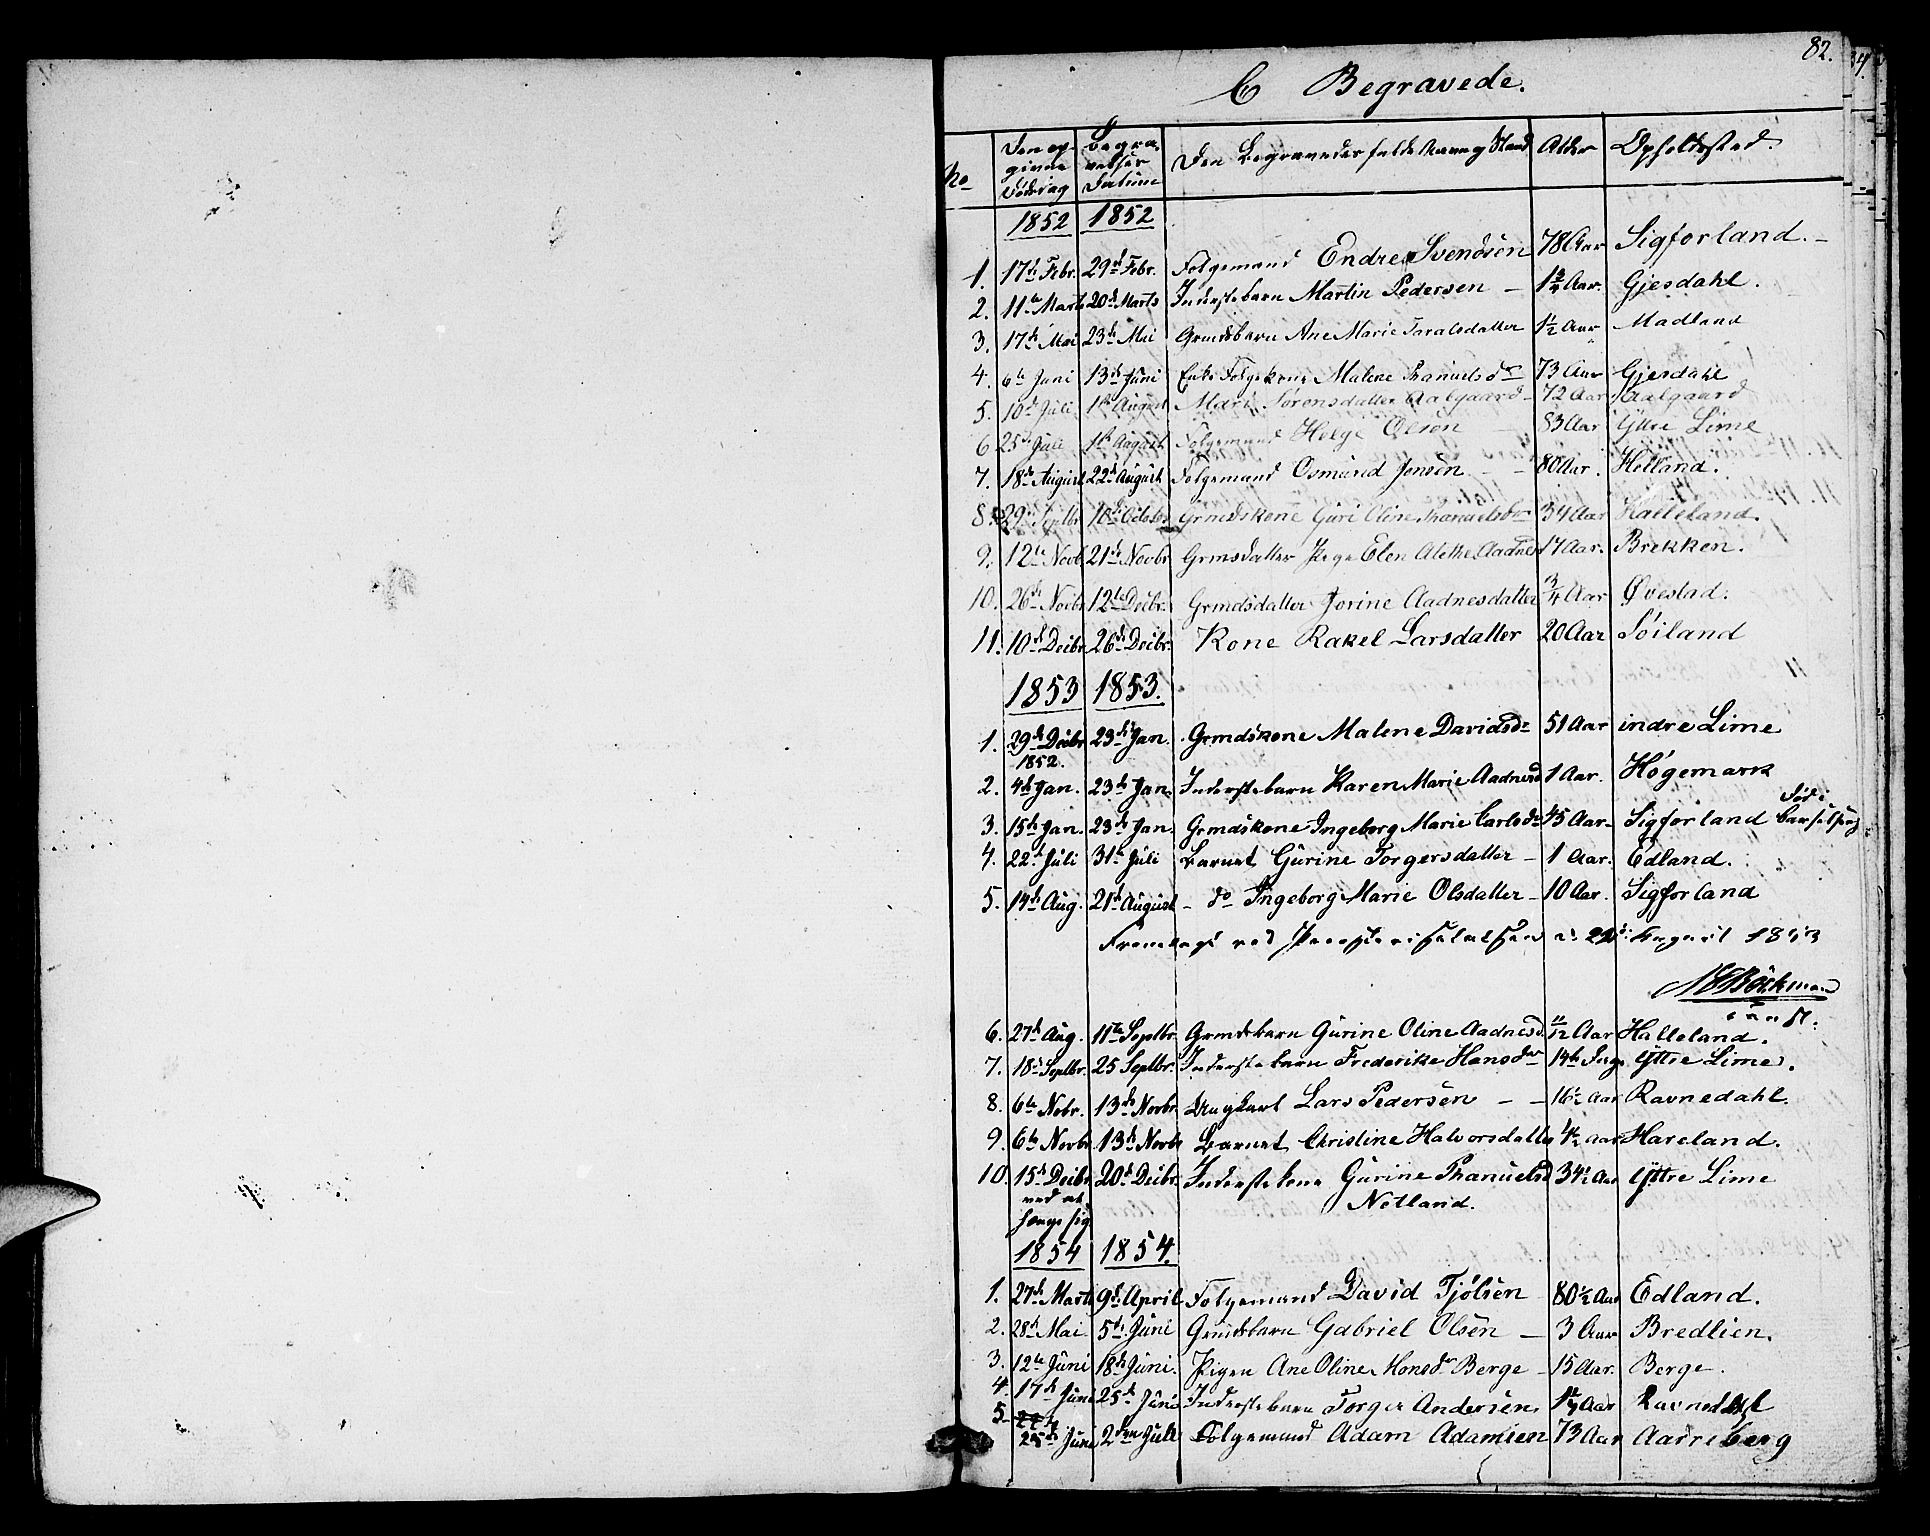 82.
C Begravede.
No Den opgivne Dödsdag Begravelses Datum Den Begravedes fulde Navn og Stand Alder Opholdssted.
1852 1852
1. 17de Febr. 29de Febr. Folgemand Endre Svendsen 78 Aar Sigforland.
2. 11te Marts 20de Marts Inderstebarn Martin Pedersen 1 3/4 Aar. Gjesdahl.
3. 17de Mai 23de Mai Grmdsbarn Ane Marie Taralsdatter 1 1/2 Aar Madland
4. 6te Juni 13de Juni Enke Folgekone Malene Thanuelsdr 73 Aar Gjesdahl
5. 10de Juli 1ste August Mari Sörensdatter Aalgaard 72 Aar Aalgaard
6 25de Juli 1ste August Folgemand Helge Olsen 83 Aar Yttre Lime
7. 18de August 22de August Folgemand Osmund Jonsen 80 Aar. Helland.
8. 29de Septbr 10de October Grmdskone Guri Oline Thanuelsdr 34 Aar Halleland.
9. 12te Novb. 21de Novbr Grmsdatter Pige Elen Alethe Aadnesd 17 Aar. Brekken.
10. 26de Novbr 12te Decbr. Grmdsdatter Jorine Aadnesdatter 3/4 Aar Øvestad.
11. 10de Decbr. 26de Decbr. Kone Rakel Larsdatter 20 Aar Söiland
1853 1853.
1. 29de Decbr 23de Jan. Grmdskone Malene Davidsdr 51 Aar indre Lime
1852.
2. 4de Jan. 23de Jan. Inderstebarn Karen Marie Aadnesd 1 Aar. Høgemark
3. 15de Jan. 23de Jan. Grmdskone Ingeborg Marie Carlsdr 45 Aar Sigforland Död i Barselseng
4. 22de Juli 31te Juli Barnet Gurine Torgersdatter 1 Aar. Edland.
5. 14de Aug. 21de August do Ingeborg Marie Olsdatter 10 Aar. Sigforland
Fremlagt ved Provstevisitatsen d: 22de August 1853
6. 27de Aug. 11te Septbr. Grmdsbarn Gurine Oline Aadnesd. 11/12 Aar Halleland.
7. 18de Septbr. 25 Septbr. Inderstebarn Frederikke Hansdr 14de Dage Yttre Lime.
8. 6te Nobr. 13de Novbr. Ungkarl Lars Pedersen 16 1/2 Aar Ravnedahl.
9. 6te Novbr. 13de Novbr Barnet Christine Halvorsdatter 4 1/2 Aar Hareland.
10. 15de Decbr. 20de Decbr. Inderstekone Gurine Thanuelsd 34 1/2 Aar Yttre Lime
ved at hænge sig Netland.
1854 1854.
1. 27de Marts 9de April Folgemand David Tjölsen 80 1/2 Aar Edland.
2. 28de Mai 5te Juni Grmdsbarn Gabriel Olsen 3 Aar Bredlien.
3. 12te Juni 18de Juni. Pigen Ane Oline Monsdr Berge 15 Aar. Berge.
4. 17de Juni 25de Juni Inderstebarn Torger Andersen Aar Ravnedahl
5. 25de Juni 2den Juli Folgemand Adam Adamsen 73 Aar Aarreberg